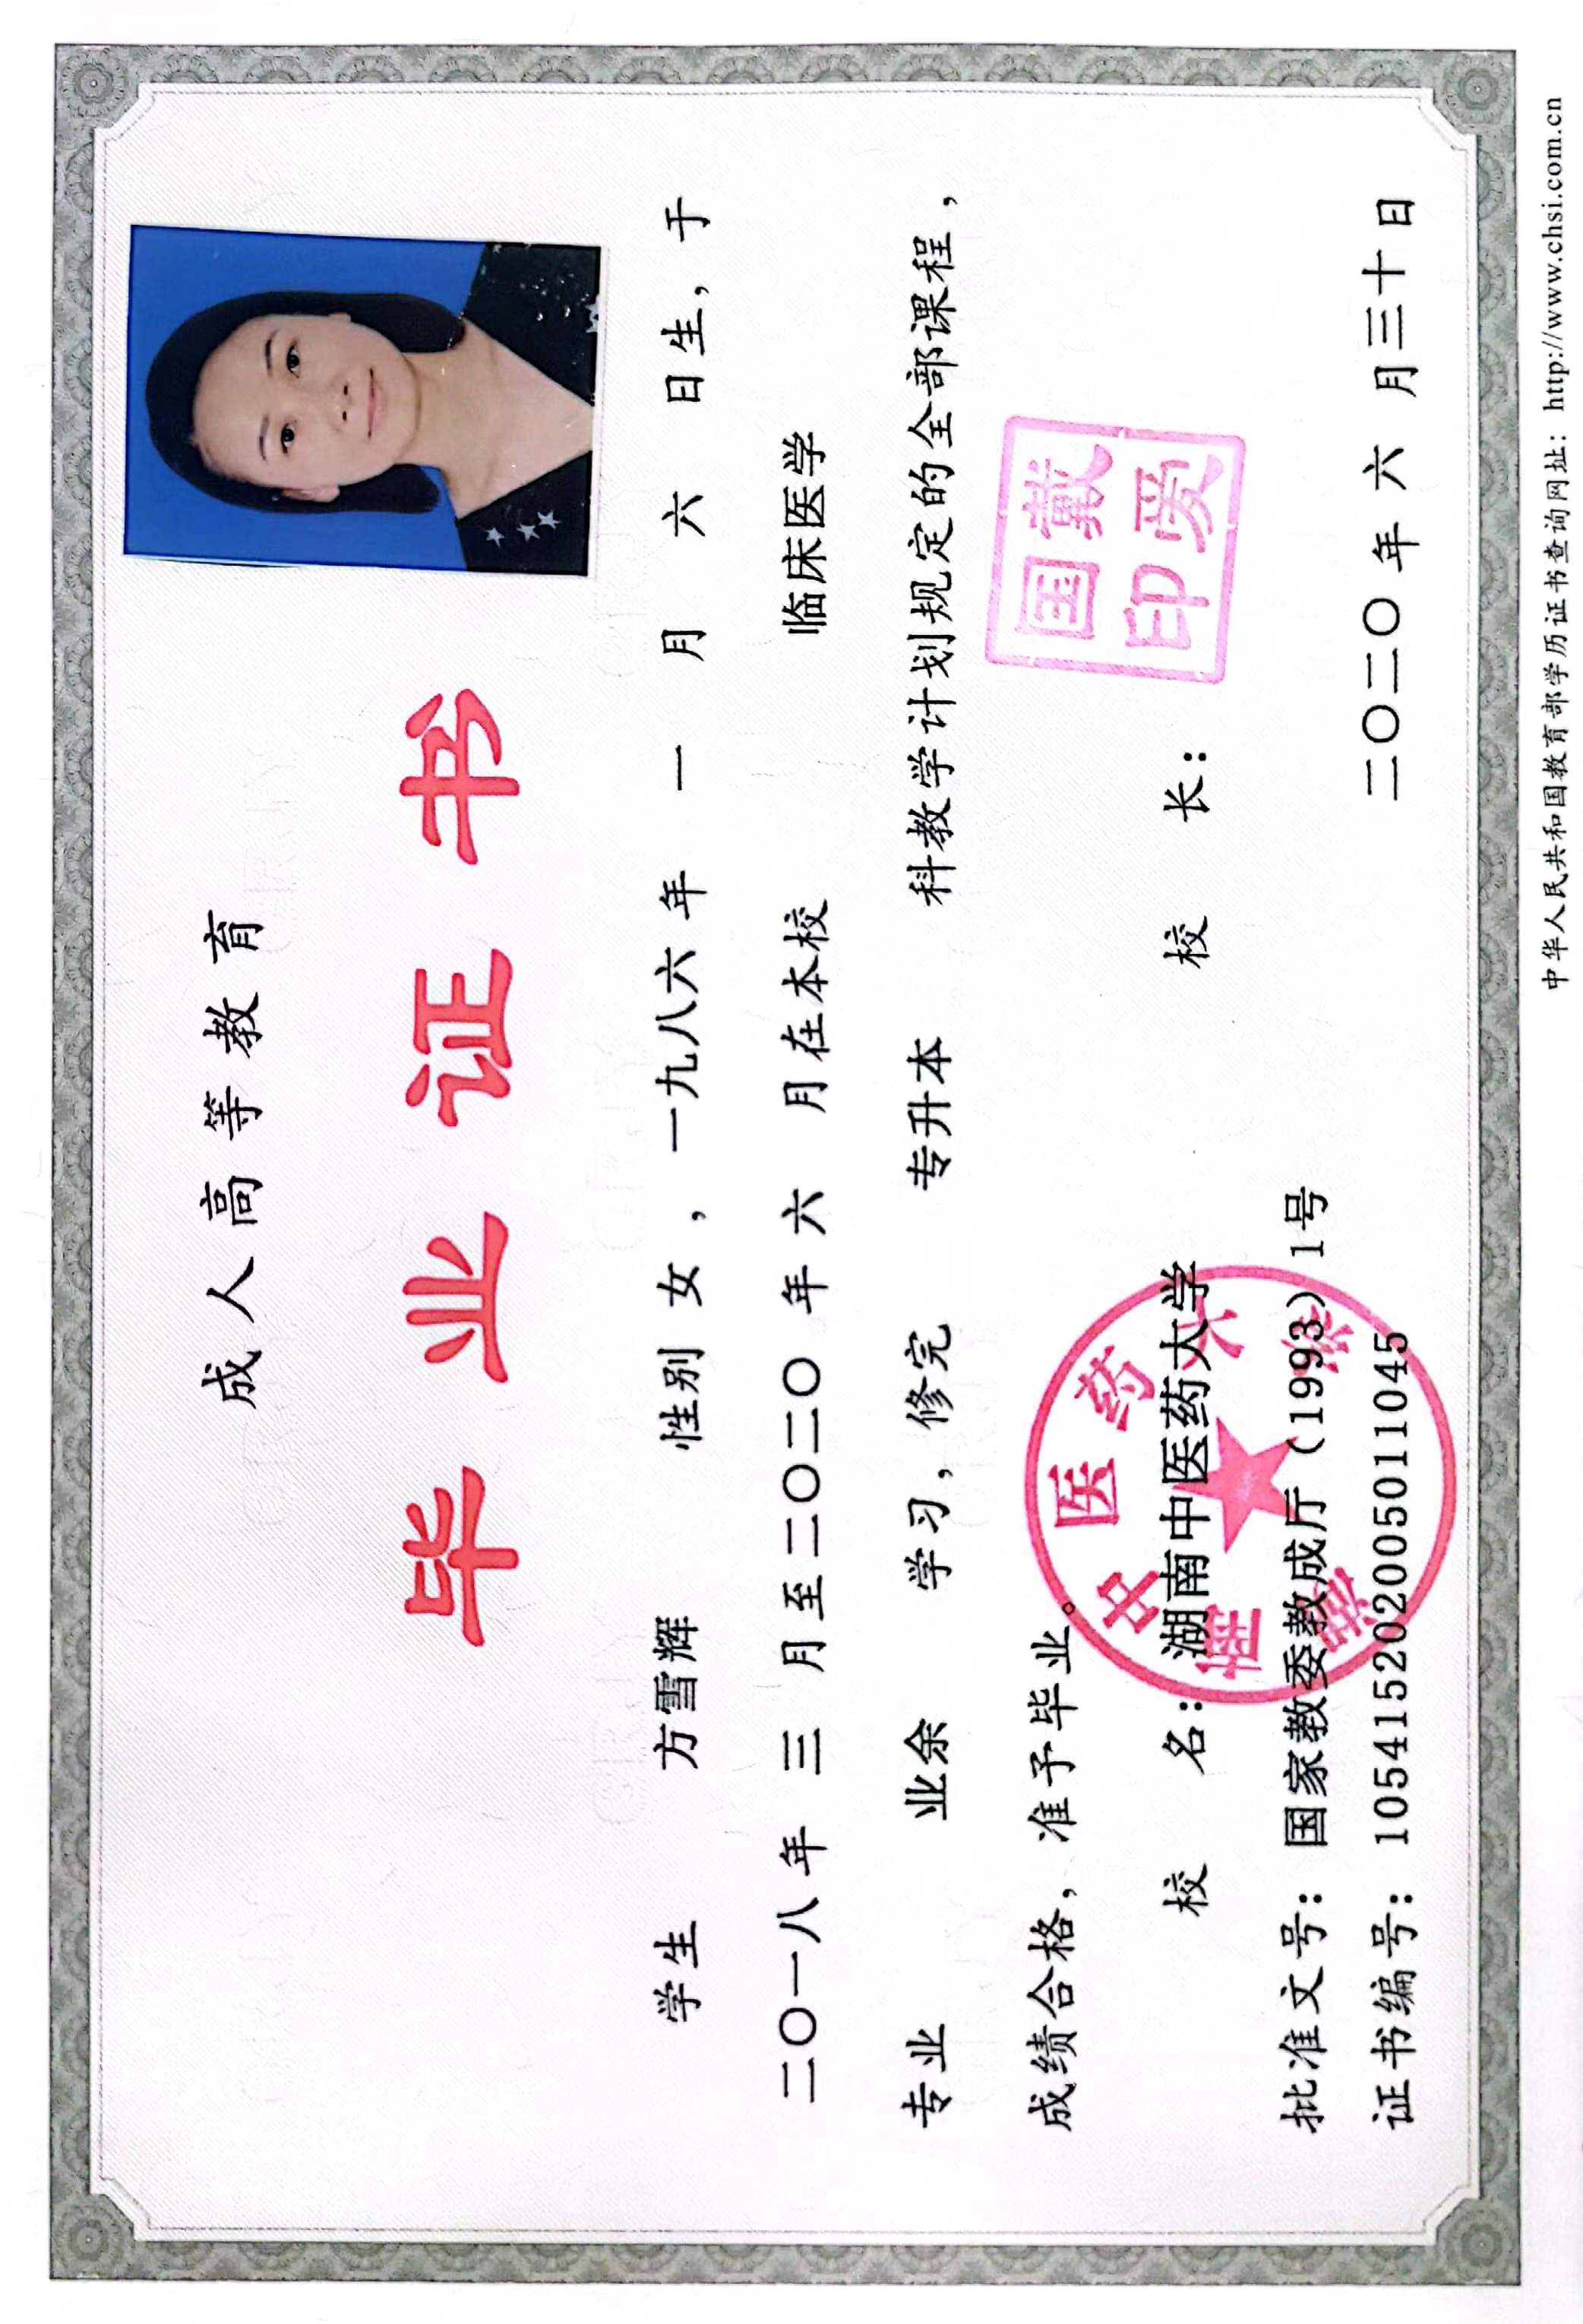 成人高等教育
毕业证书
学生 方雪辉 性别 女，一九八六年 一 月 六 日生，于
二〇一八年 三 月至二〇二〇年 六 月在本校 临床医学
专业 业余 学习，修完 专升本 科教学计划规定的全部课程，
成绩合格，准予毕业。
校 名：湖南中医药大学 校 长：
国戴
印爱
批准文号：国家教委教成厅（1993）1号
证书编号：105415202005011045 二〇二〇年 六 月三十日
中华人民共和国教育部学历证书查询网址：http://www.chsi.com.cn